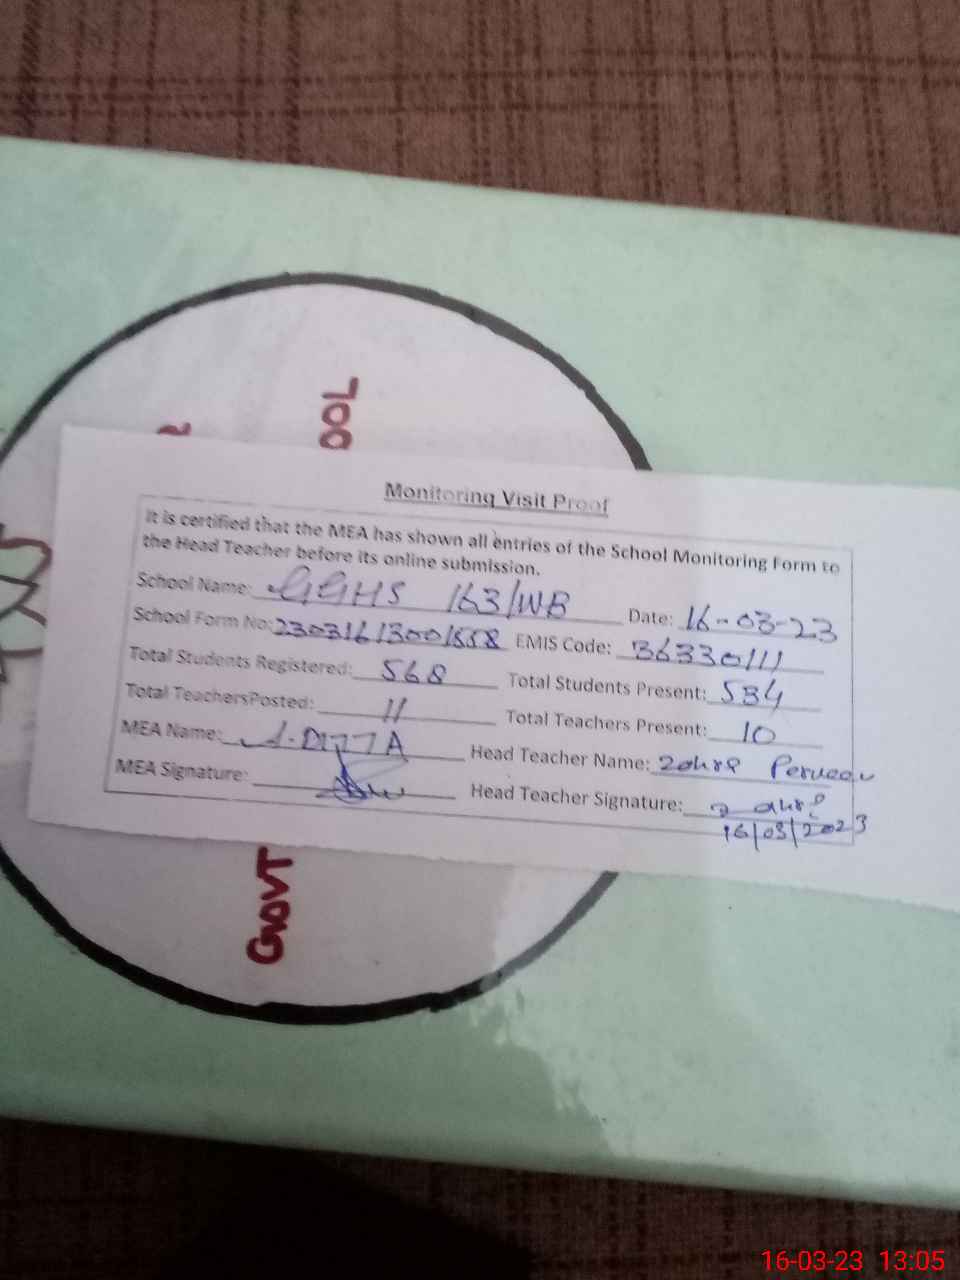 OOL
Monitoring Visit Proof
It is certified that the MEA has shown all entries of the School Monitoring Form to
the Head Teacher before its online submission.
School Name: GGHS 163/WB Date: 16-03-23
School Form No: 23031613001558 EMIS Code: 36330111
Total Students Registered: 568 Total Students Present: 534
Total TeachersPosted: 11 Total Teachers Present: 10
MEA Name: A.DITTA Head Teacher Name: Zohra Perveen
MEA Signature: Head Teacher Signature: Zohra
16/03/2023
GOVT
16-03-23 13:05